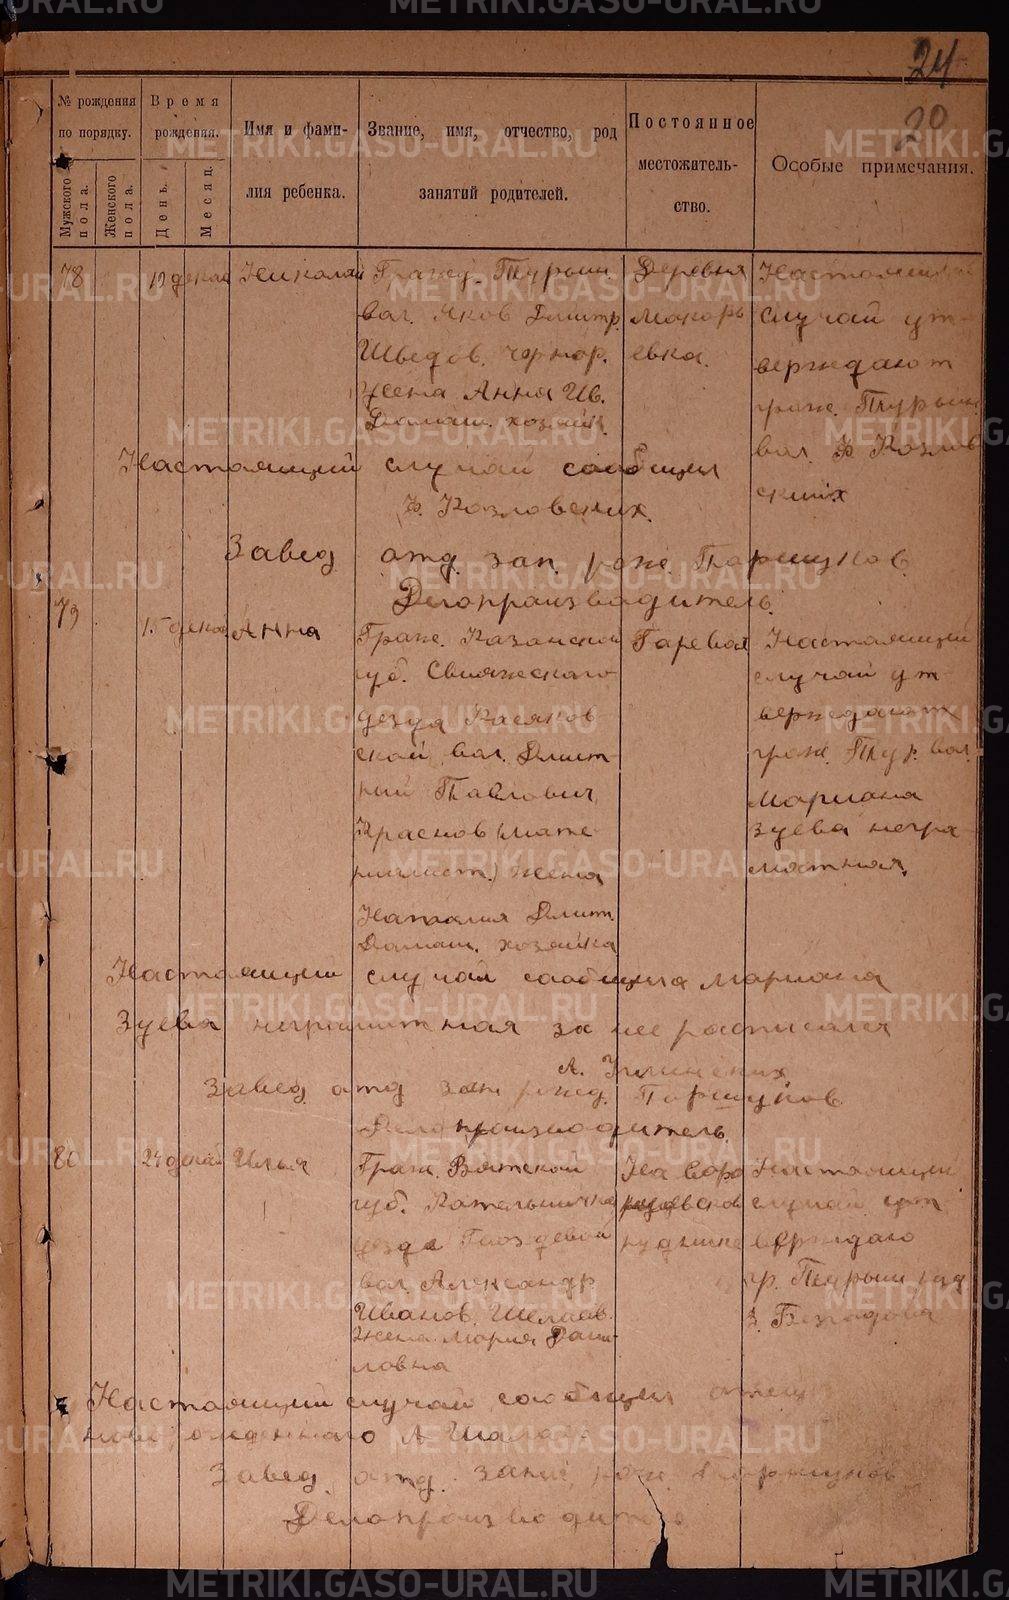 24
20
№ рождения по порядку.
Мужского пола.
Женского пола.
Время рождения.
День.
Месяц.
Имя и фами-
лия ребенка.
Звание, имя, отчество, род
занятий родителей.
Постоянное
местожитель-
ство.
Особые примечания.
78
12 декаб
Николай
Гражд. Турьин.
вол. Яков Дмитр.
Шведов. чернор.
Жена Анна Ив.
Домаш. хозяйк.
Деревня
Макарь
евка.
Настоящий
случай ут-
верждают
граж. Турьин.
вол. Ф Козлов
ских
Настоящий случай сообщил
Ф. Козловских.
Завед. отд. зап. рож. Паршуков.
Делопроизводитель.
79
15 декаб
Анна
Граж. Казанской
губ. Свияжского
уезда Касяков
ской вол. Дмит-
рий Павлович
Краснов (мате-
риалист.) жена
Наталия Дмит.
Домаш. хозяйка
Гаревая
Настоящий
случай ут-
верждает
граж. Тур. вол.
Мариана
Зуева негра-
мотная.
Настоящий случай сообщила Мариана
Зуева неграмотная за нее расписался
А.
Завед. отд зап рожд. Паршуков
Делопроизводитель.
80
24 декаб
Илья
Граж. Вятской
губ. Котельнична
уезда Гвоздевой
вол. Александр
Иванов. Шелаев.
Жена Мария Дани-
ловна
На
руднике
Настоящий
случай ут-
верждаю
гр. Турьин
Настоящий случай сообщил отец
новорожденного А
Завед. отд. запис рож. Паршуков
Делопроизводитель
METRIKI.GASO-URAL.RU